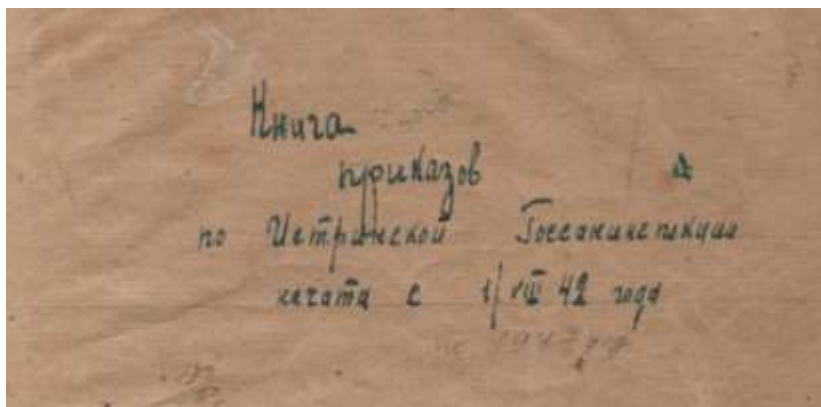 Книга
приказов
по Истринской Госсанинспекции
начата с 1/VIII 42 года